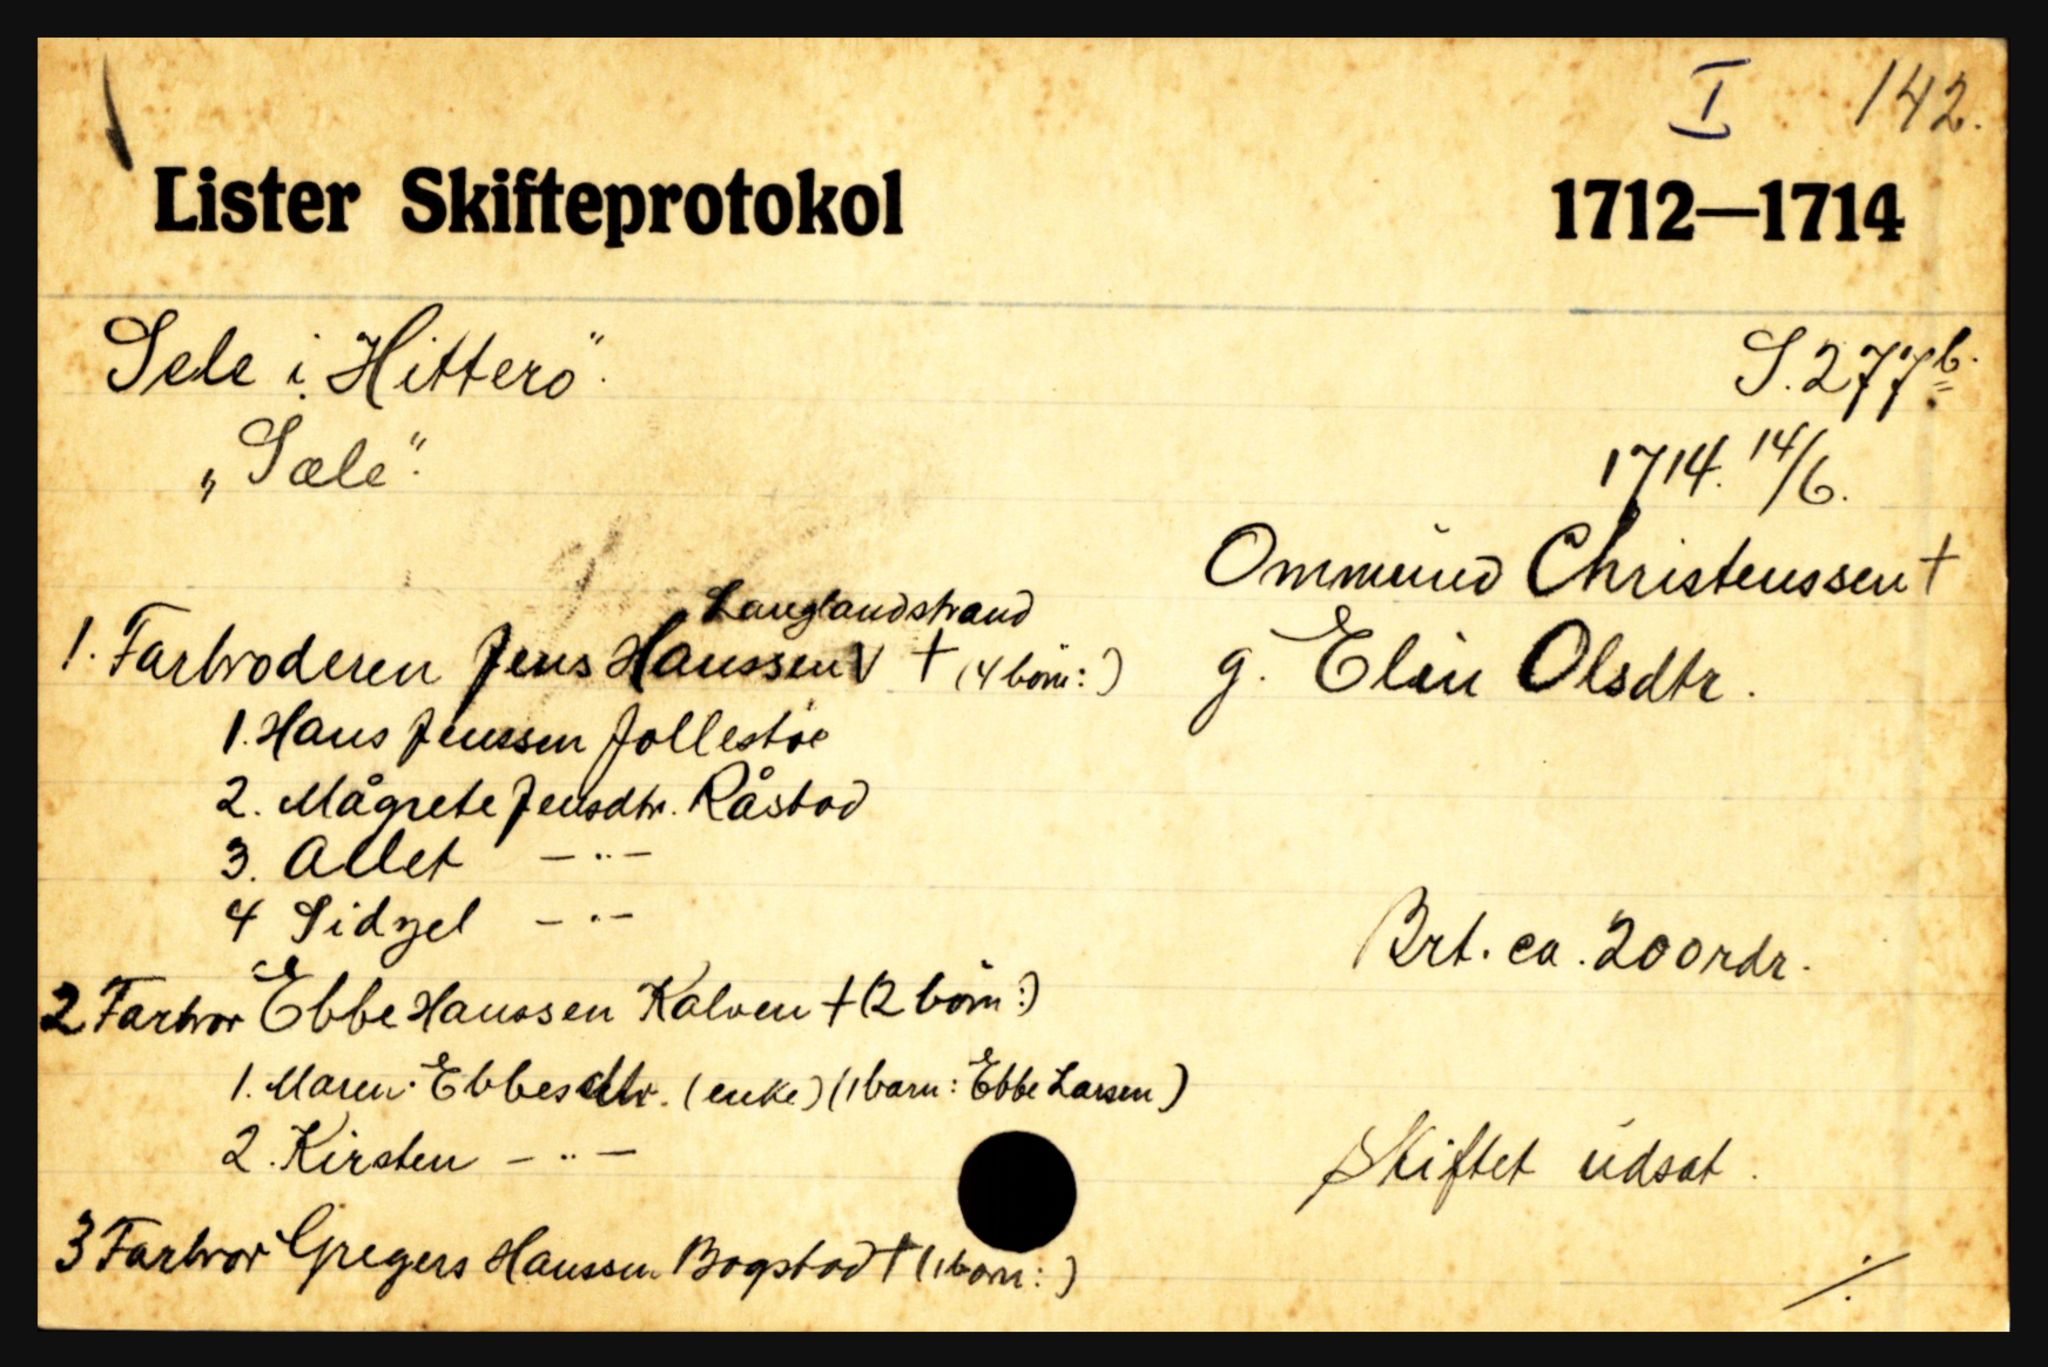 I 142.
Lister Skifteprotokol 1712—1714
Sele i Hitterö. S. 277b.
„Sæle". 1714. 14/6.
Ommund Christenssen †
g. Elin Olsdtr.
Langlandstrand
1. Farbroderen Jens Hanssen V † (4 börn:)
1. Hans Jenssen Jollestöe
2. Mågrete Jensdtr. Råstad
3. Allet — „ —
4 Sidzel — „ —
Brt. ca. 200 rdr.
2 Farbror Ebbe Hanssen Kalven † (2 börn:)
1. Maren Ebbesdtr. (enke) (1 barn: Ebbe Larsen)
2. Kirsten — „ —
Skiftet udsat.
3 Farbror Gregers Hanssen Bogstad † (1 barn:)
./.